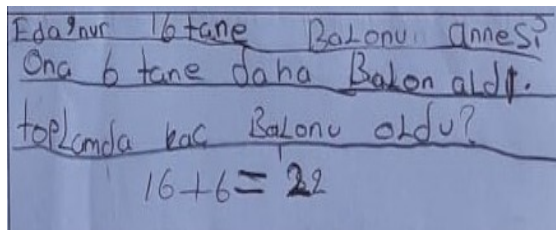 Edaɂnur 16 tane Balonu. annesi
Ona 6 tane daha Balon aldı.
toplamda kac Balonu oldu?
16+6=22